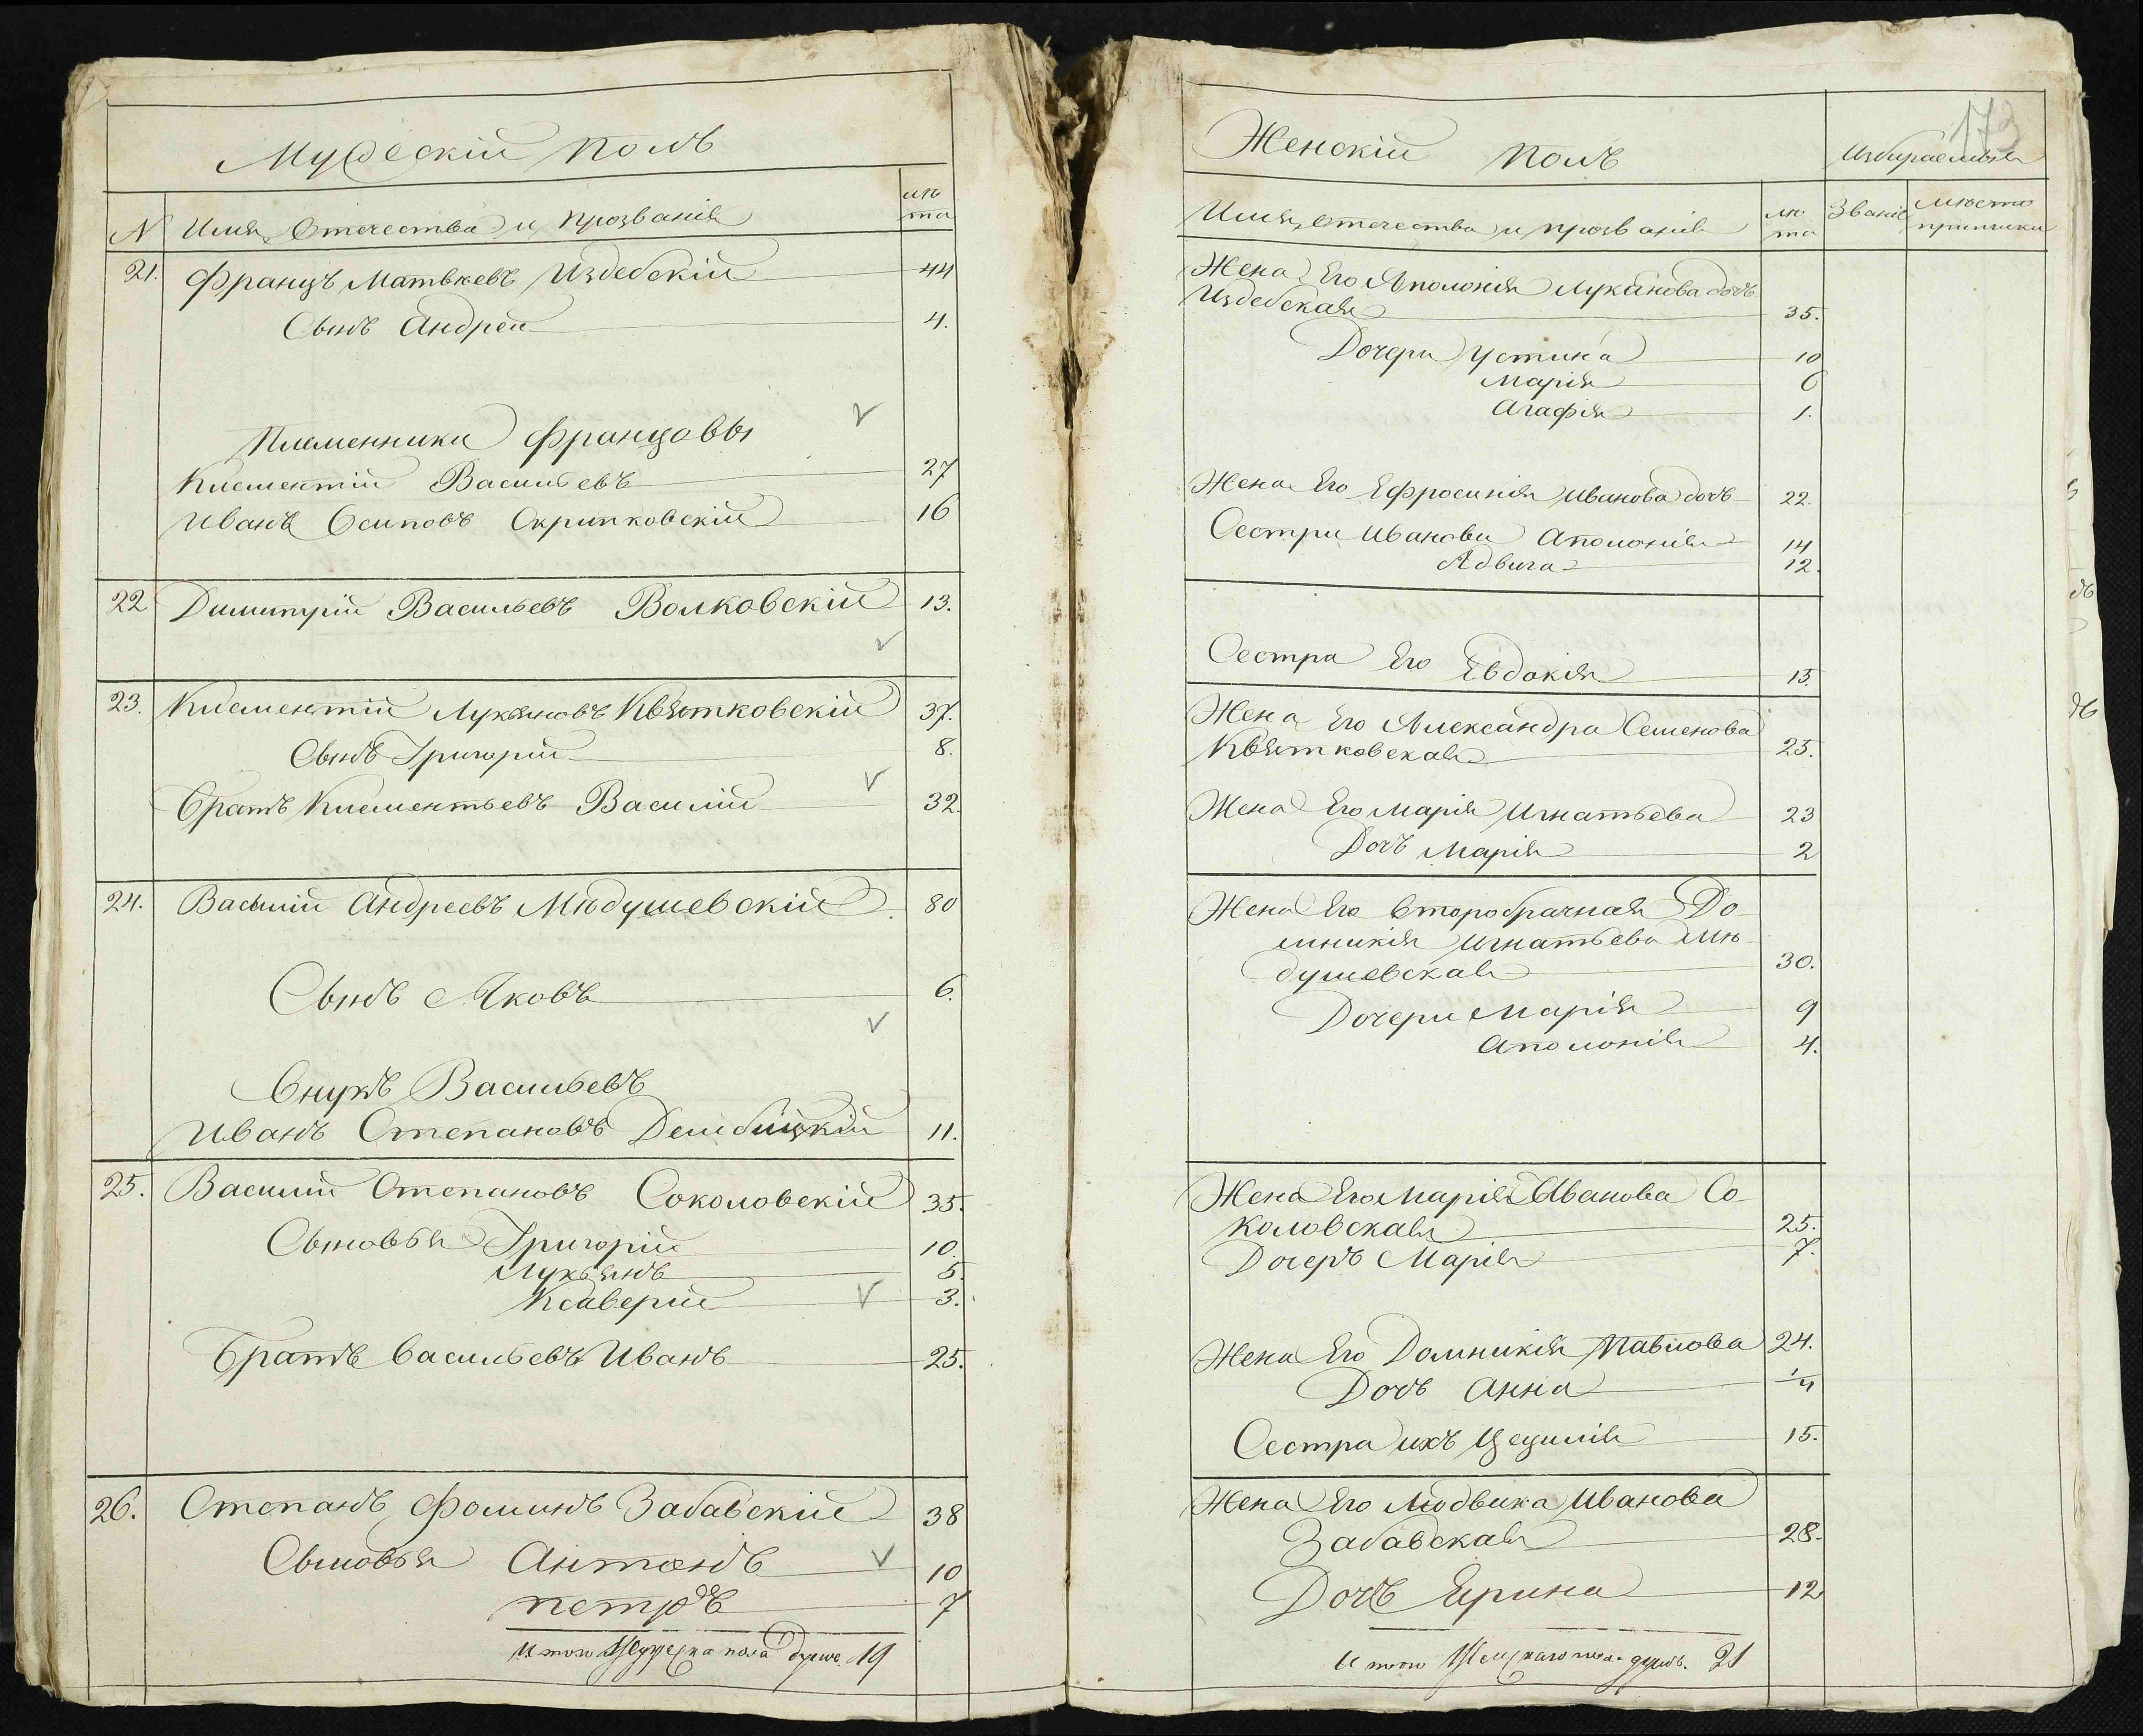 Мужескій полъ
N Имя, Отечества и прозванія лѣта
21. Францъ Матвѣевъ Издебскій 44
Сынъ Андрей 4.
Племенники Францовы
Климентій Васильевъ 27
Иванъ Осиповъ Скрипковскій 16
22 Димитрій Васильевъ Волковскій 13.
23. Климентій Лукьяновъ Квятковскій 37.
Сынъ Григорій 8.
Братъ Климентьевъ Василій 32.
24. Василій Андреевъ Мѣдушевскій 80
Сынъ Яковъ 6.
Внукъ Васильевъ
Иванъ Степановъ 11.
25. Василий Степановъ Соколовскій 35.
Сыновья Григорій 10.
Лукьянъ 5.
Ксаверій 3.
Братъ Васильевъ Иванъ 25.
26. Степанъ Фоминъ Забавскій 38
Сыновья Антонъ 10
Петръ 7
Итого пола душъ 19
173
Женскій полъ Избираемыя
Имя, отечества и прозванія лѣта Званіе Мѣсто приписки
Жена Его Аполонія Лукианова дочь
Издебская 35.
Дочери Устина 10
Марія 6
Агафія 1.
Жена Его Ефросинія Иванова дочь 22.
Сестри Иванови Аполонія 14
Адвига 12.
Сестра Его Евдокія 15.
Жена Его Александра Семенова
Квятковская 25.
Жена Его Марія Игнатьева 23
Дочь Марія 2
Жена Его Второбрачная До-
мникія Игнатьева Мѣ-
душевская 30.
Дочери Марія 9
Аполонія 4.
Жена Его Марія Иванова Со-
коловская 25.
Дочеръ Марія 7.
Жена Его Домникія Павлова 24.
Дочь Анна 1/4
Сестра ихъ Цецилія 15.
Жена Его Людвика Иванова
Забавская 28.
Дочь Ярина 12
Итого Женскаго пола душъ. 21